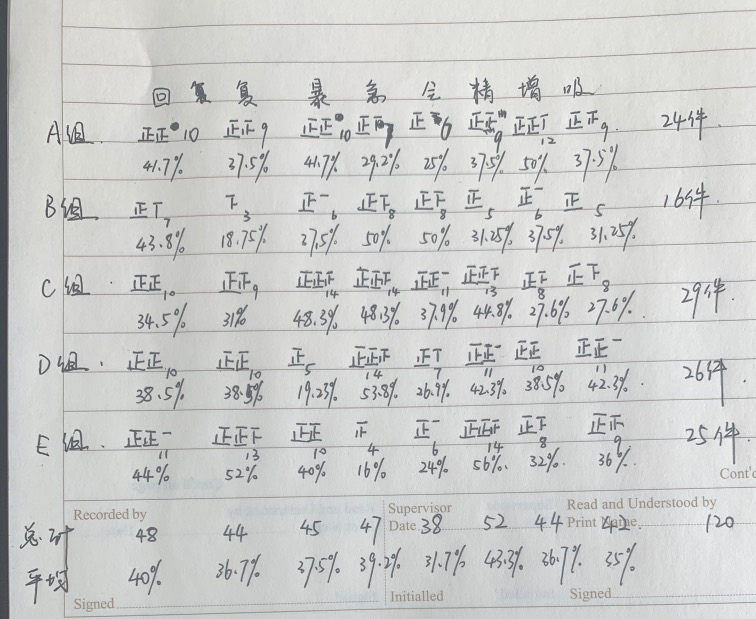 回 复 复 暴 急 仝 精 增 吸
A组. 正正 10 正正 9 正正 10 正下 7 正 6 正正 9 正正丅 12 正正 9. 24件.
41.7% 37.5% 41.7% 29.2% 25% 37.5% 50% 37.5%
B组. 正丅 7 下 3 正一 6 正下 8 正下 8 正 5 正一 6 正 5 16件.
43.8% 18.75% 37.5% 50% 50% 31.25% 37.5% 31.25%
C组. 正正 10 正正 9 正正正 14 正正正 14 正正一 11 正正下 13 正下 8 正下 8 29件.
34.5% 31% 48.3% 48.3% 37.9% 44.8% 27.6% 27.6%
D组. 正正 10 正正 10 正 5 正正正 14 正丅 7 正正一 11 正正 10 正正一 11 26件
38.5% 38.5% 19.23% 53.8% 26.9% 42.3% 38.5% 42.3%
E组. 正正一 11 正正下 13 正正 10 正 4 正一 6 正正正 14 正下 8 正正 9 25件.
44% 52% 40% 16% 24% 56%. 32%. 36%.
Cont'd
Recorded by Supervisor Read and Understood by
Date Print Name
总计 48 44 45 47 38 52 44 42 120
平均 40% 36.7% 37.5% 39.2% 31.7% 43.3% 36.7% 35%
Signed Initialled Signed